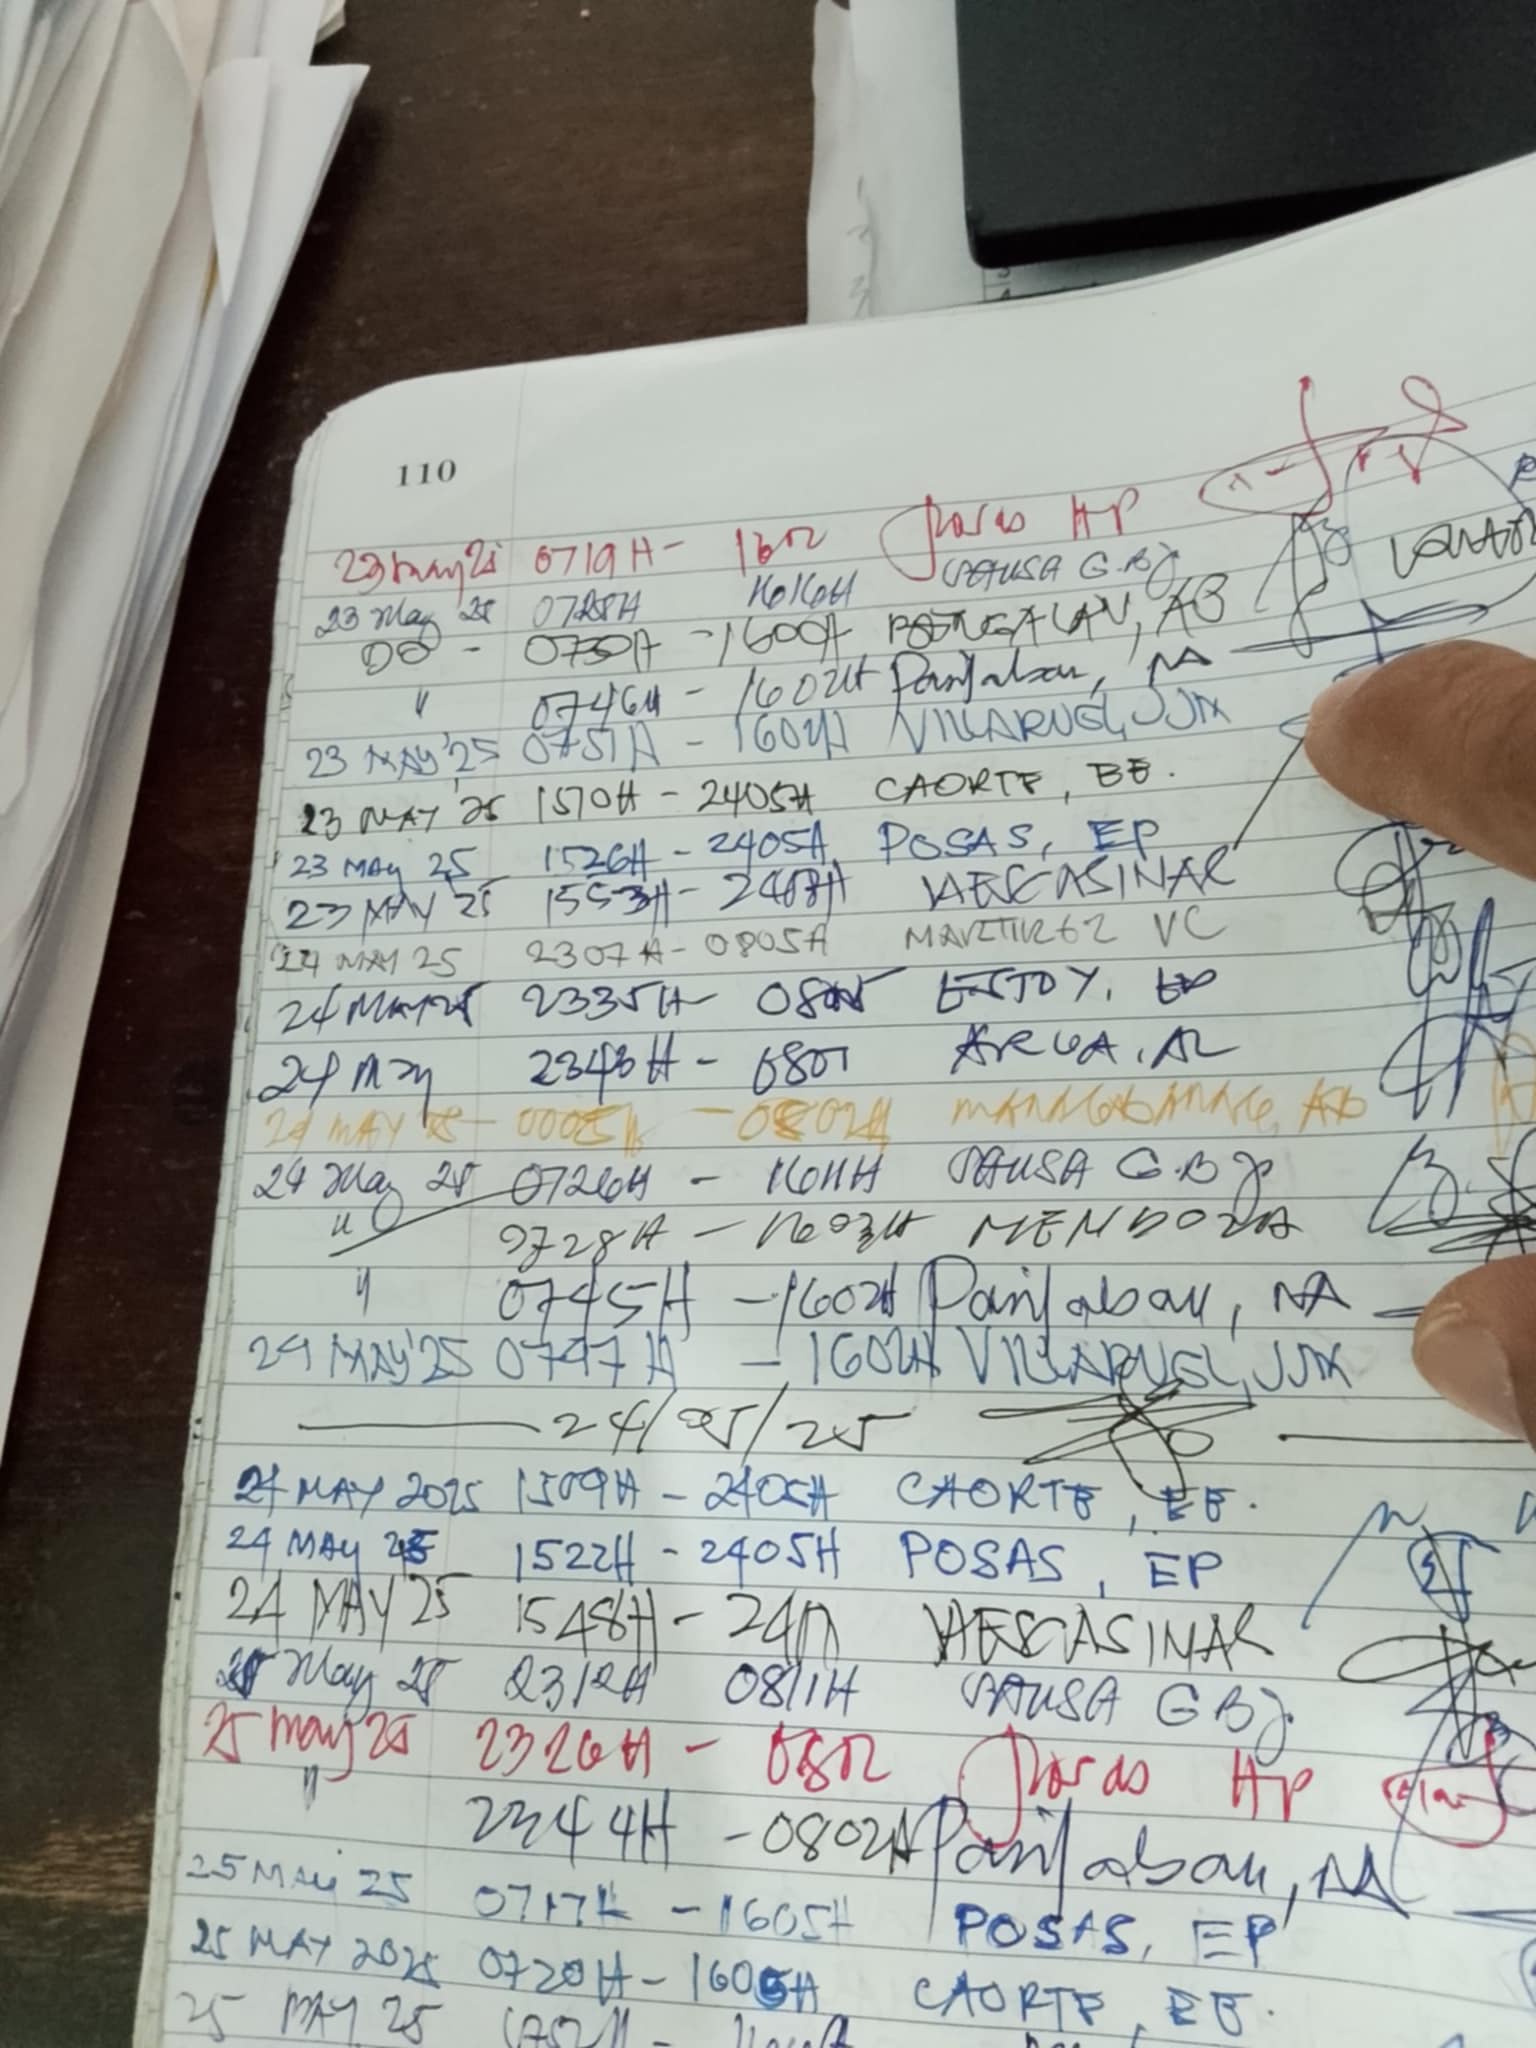 110
23 May 25 0719H - 1602 HP
23 May 25 0728H 1616H PAUSA G.B J
DO - 0730H - 1600H BENGALAN, AB
" 0746H - 1602H Panjabau, NA
23 MAY '25 0751H - 1602H VILLARUEL, JJM
23 MAY '25 1510H - 2405H CAORTE, EE.
23 MAY 25 1526H - 2405H POSAS, EP
23 MAY 25 1553H - 2407H VIESCASINAR
24 MAY 25 2307H - 0805H VC
24 MAY 25 2335H - 0805 ESTOY, EP
24 May 2343H - 0801 ARGA, AL
24 MAY 25 - 0005H - 0802H
24 May 25 0726H - 1611H PAUSA G.B J
" 0728H - 1603H MENDOZA
" 0745H - 1602H Panjabau, NA
24 MAY '25 0747H - 1602H VILLARUEL, JJM
24/05/25
24 MAY 2025 1509H - 2405H CAORTE, EE.
24 MAY 25 1522H - 2405H POSAS, EP
24 MAY 25 1548H - VIESCASINAR
25 May 25 2312H 0811H PAUSA G B J
25 May 25 2326H - 0802 HP
" 2344H - 0802H Panjabau, NA
25 MAY 25 0717H - 1605H POSAS, EP
25 MAY 2025 0720H - 1605H CAORTE, EE.
25 MAY 25